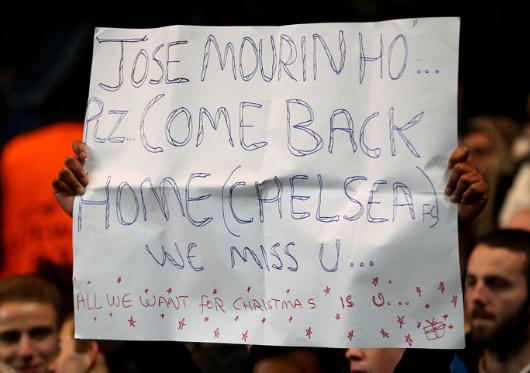 JOSE MOURINHO...
PLZ... COME BACK
HOME (CHELSEA FC)
WE MISS U...
ALL WE WANT FOR CHRISTMAS IS U....